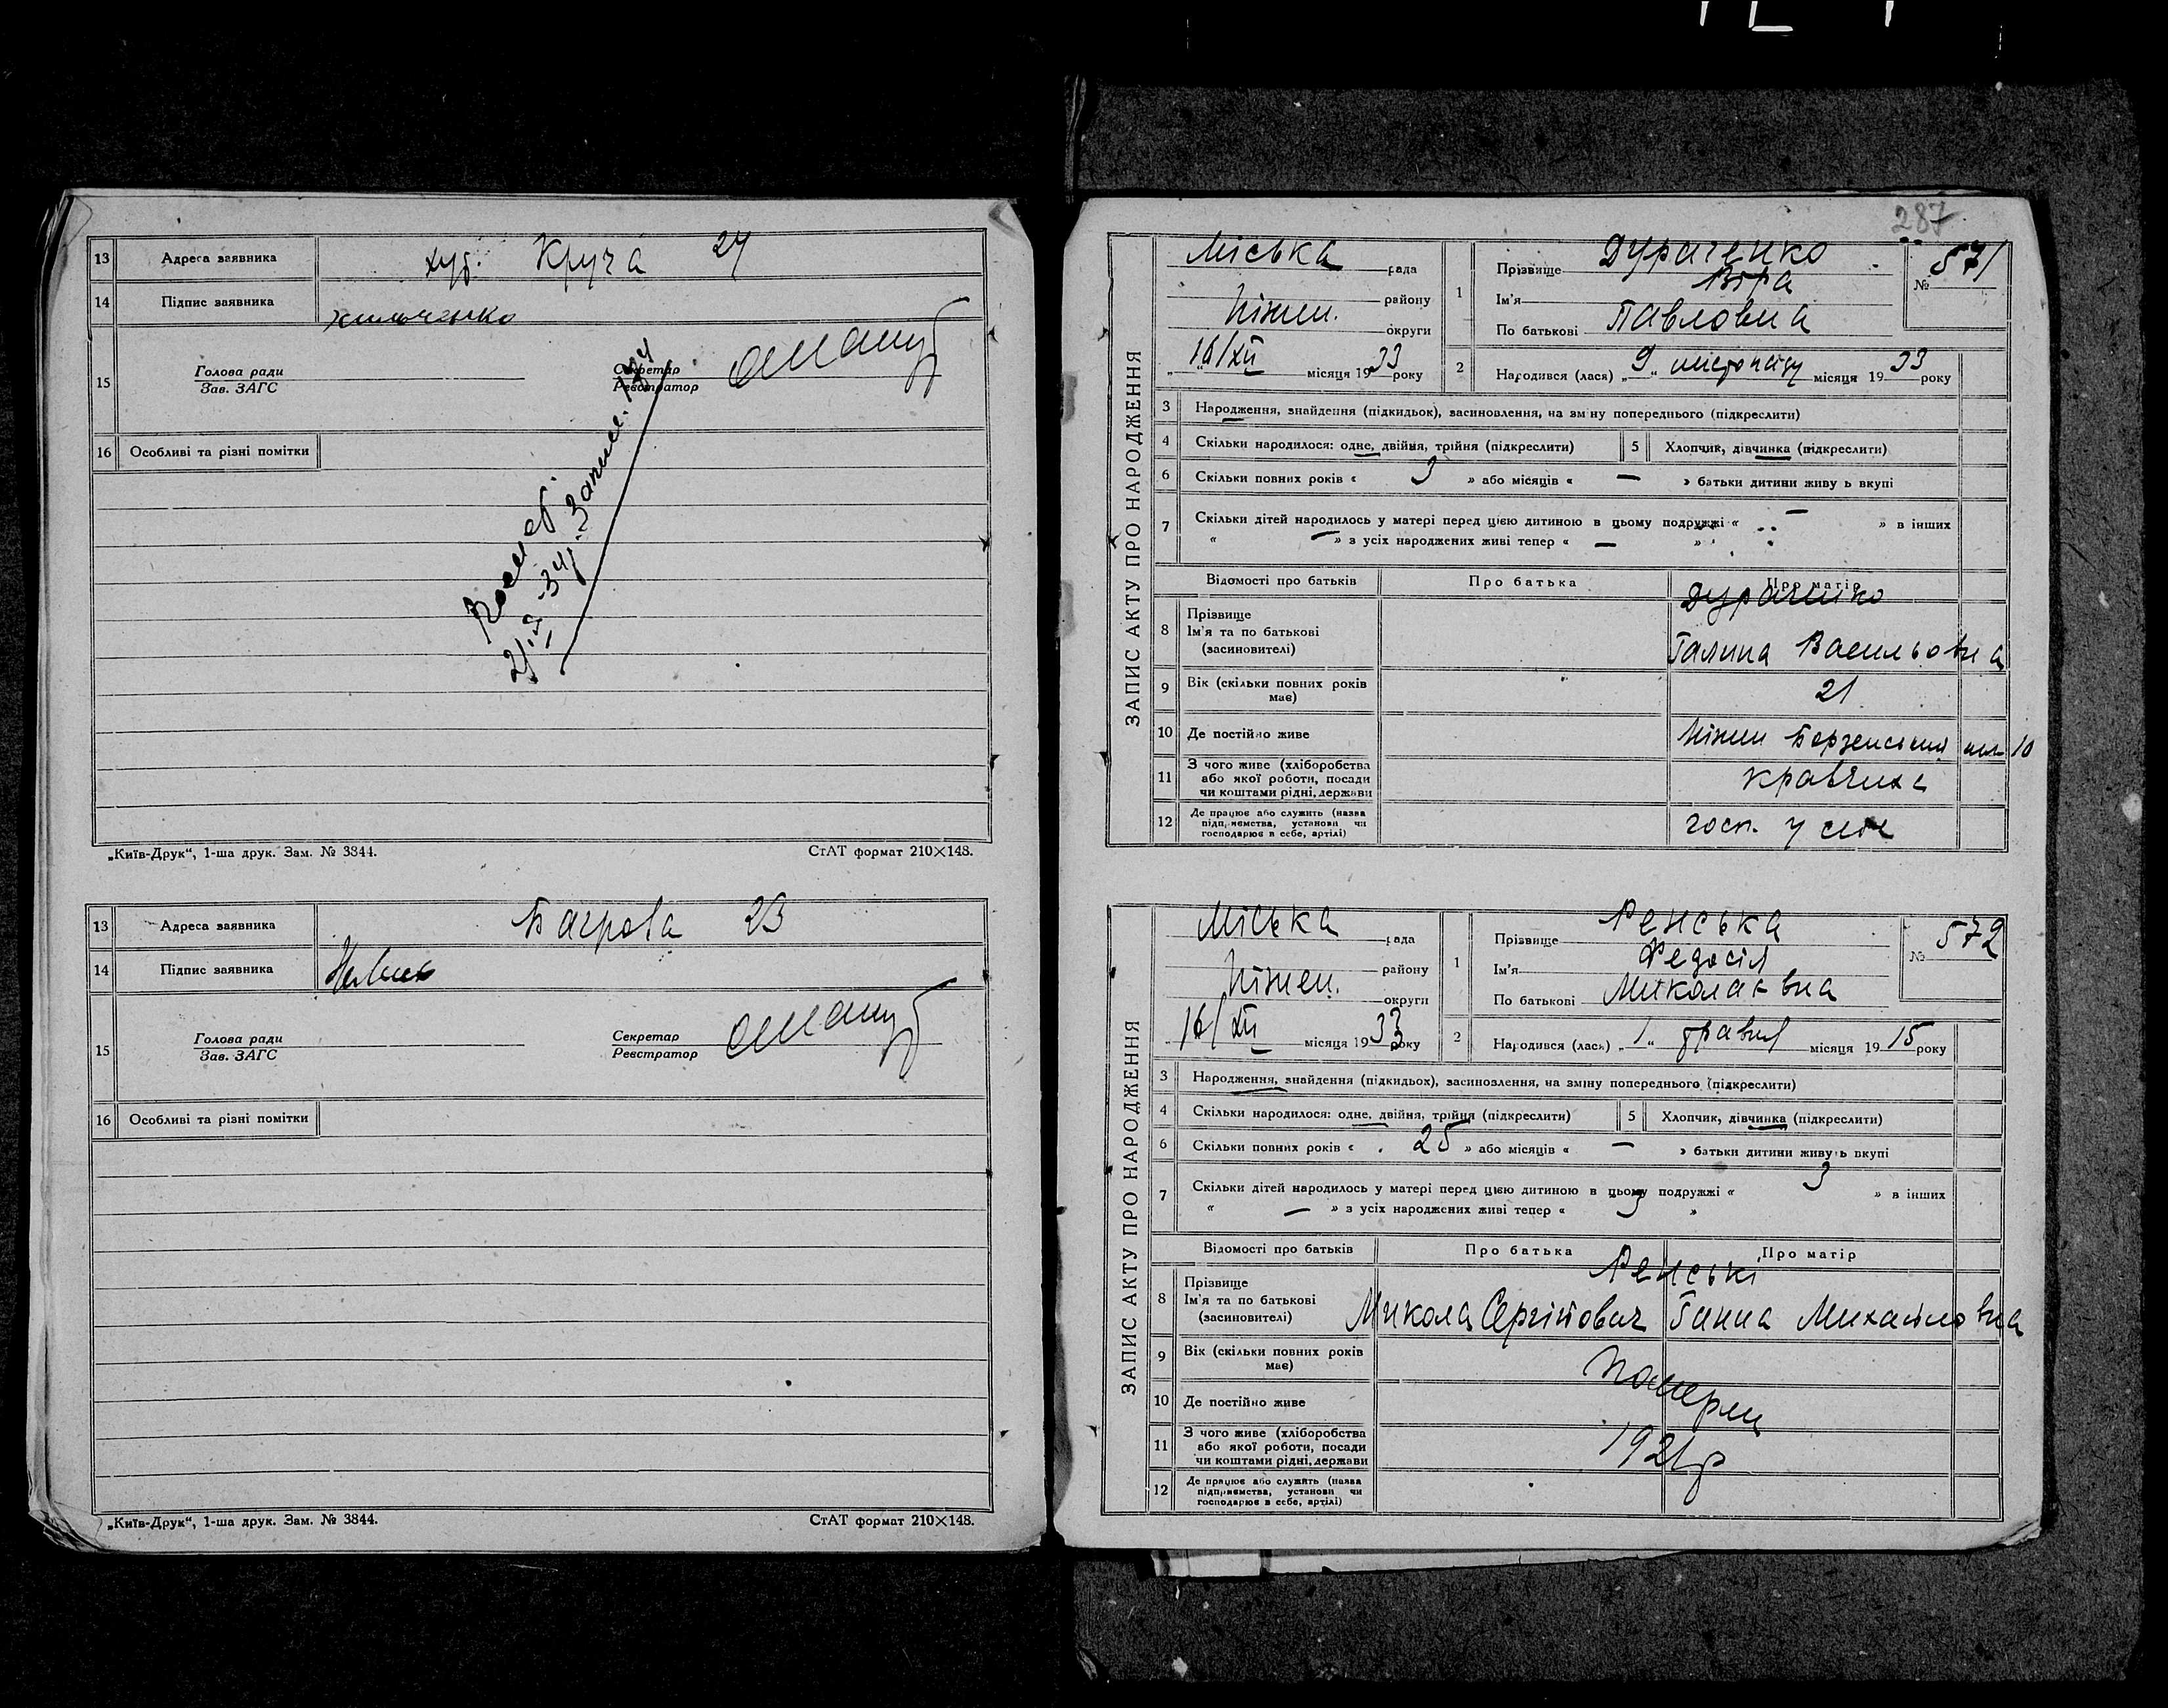 13 Адреса заявника хут. Круча 24
14 Підпис заявника
15 Голова ради
Зав. ЗАГС
Секретар
Реєстратор
16 Особливі та різні помітки
„Київ-Друк“, 1-ша друк. Зам. № 3844. СтАТ формат 210×148.
13 Адреса заявника Багрова 23
14 Підпис заявника
15 Голова ради
Зав. ЗАГС
Секретар
Реєстратор
16 Особливі та різні помітки
„Київ-Друк“, 1-ша друк. Зам. № 3844. СтАТ формат 210×148.
287
ЗАПИС АКТУ ПРО НАРОДЖЕННЯ
Міська рада
району
Ніжен. округи
16/XII місяця 1933 року
1 Прізвище Дураченко
Ім'я Віра
По батькові Павловна
№ 571
2 Народився (лася) „9“ листопаду місяця 1933 року
3 Народження, знайдення (підкидьок), засиновлення, на зміну попереднього (підкреслити)
4 Скільки народилося: одне, двійня, трійня (підкреслити) 5 Хлопчик, дівчинка (підкреслити)
6 Скільки повних років « 3 » або місяців « — » батьки дитини живуть вкупі
7 Скільки дітей народилось у матері перед цією дитиною в цьому подружжі « — » в інших
« — » з усіх народжених живі тепер « — »
Відомості про батьків Про батька Про матір
8 Прізвище Ім'я та по батькові (засиновителі) Дураченко
Галина Васильовна
9 Вік (скільки повних років має) 21
10 Де постійно живе Ніжин Борзенський шл 10
11 З чого живе (хліборобства або якої роботи, посади чи коштами рідні, держави кравчиха
12 Де працює або служить (назва підприємства, установи чи господарює в себе, артілі) госп. у себе
ЗАПИС АКТУ ПРО НАРОДЖЕННЯ
Міська рада
району
Ніжен. округи
16/XII місяця 1933 року
1 Прізвище Ренська
Ім'я Федосія
По батькові Миколаєвна
№ 572
2 Народився (лась) „1“ травня місяця 1915 року
3 Народження, знайдення (підкидьох), засиновлення, на зміну попереднього (підкреслити)
4 Скільки народилося: одне, двійня, трійня (підкреслити) 5 Хлопчик, дівчинка (підкреслити)
6 Скільки повних років « 25 » або місяців « — » батьки дитини живуть вкупі
7 Скільки дітей народилось у матері перед цією дитиною в цьому подружжі « 3 » в інших
« — » з усіх народжених живі тепер « 3 »
Відомості про батьків Про батька Про матір
8 Прізвище Ім'я та по батькові (засиновителі) Ренські
Микола Сергійович Ганна Михайловна
9 Вік (скільки повних років має)
10 Де постійно живе
Померли
11 З чого живе (хліборобства або якої роботи, посади чи коштами рідні, держави
1921р
12 Де працює або служить (назва підприємства, установи чи господарює в себе, артілі)